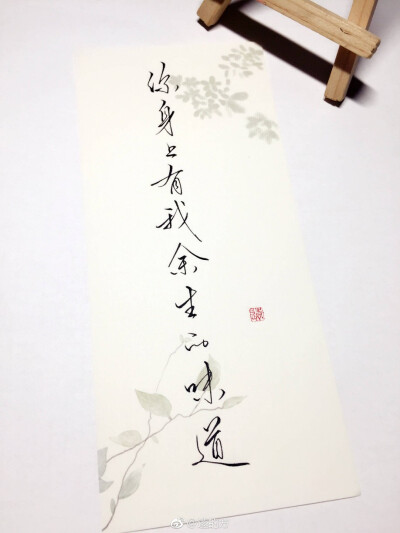 你身上有我余生的味道